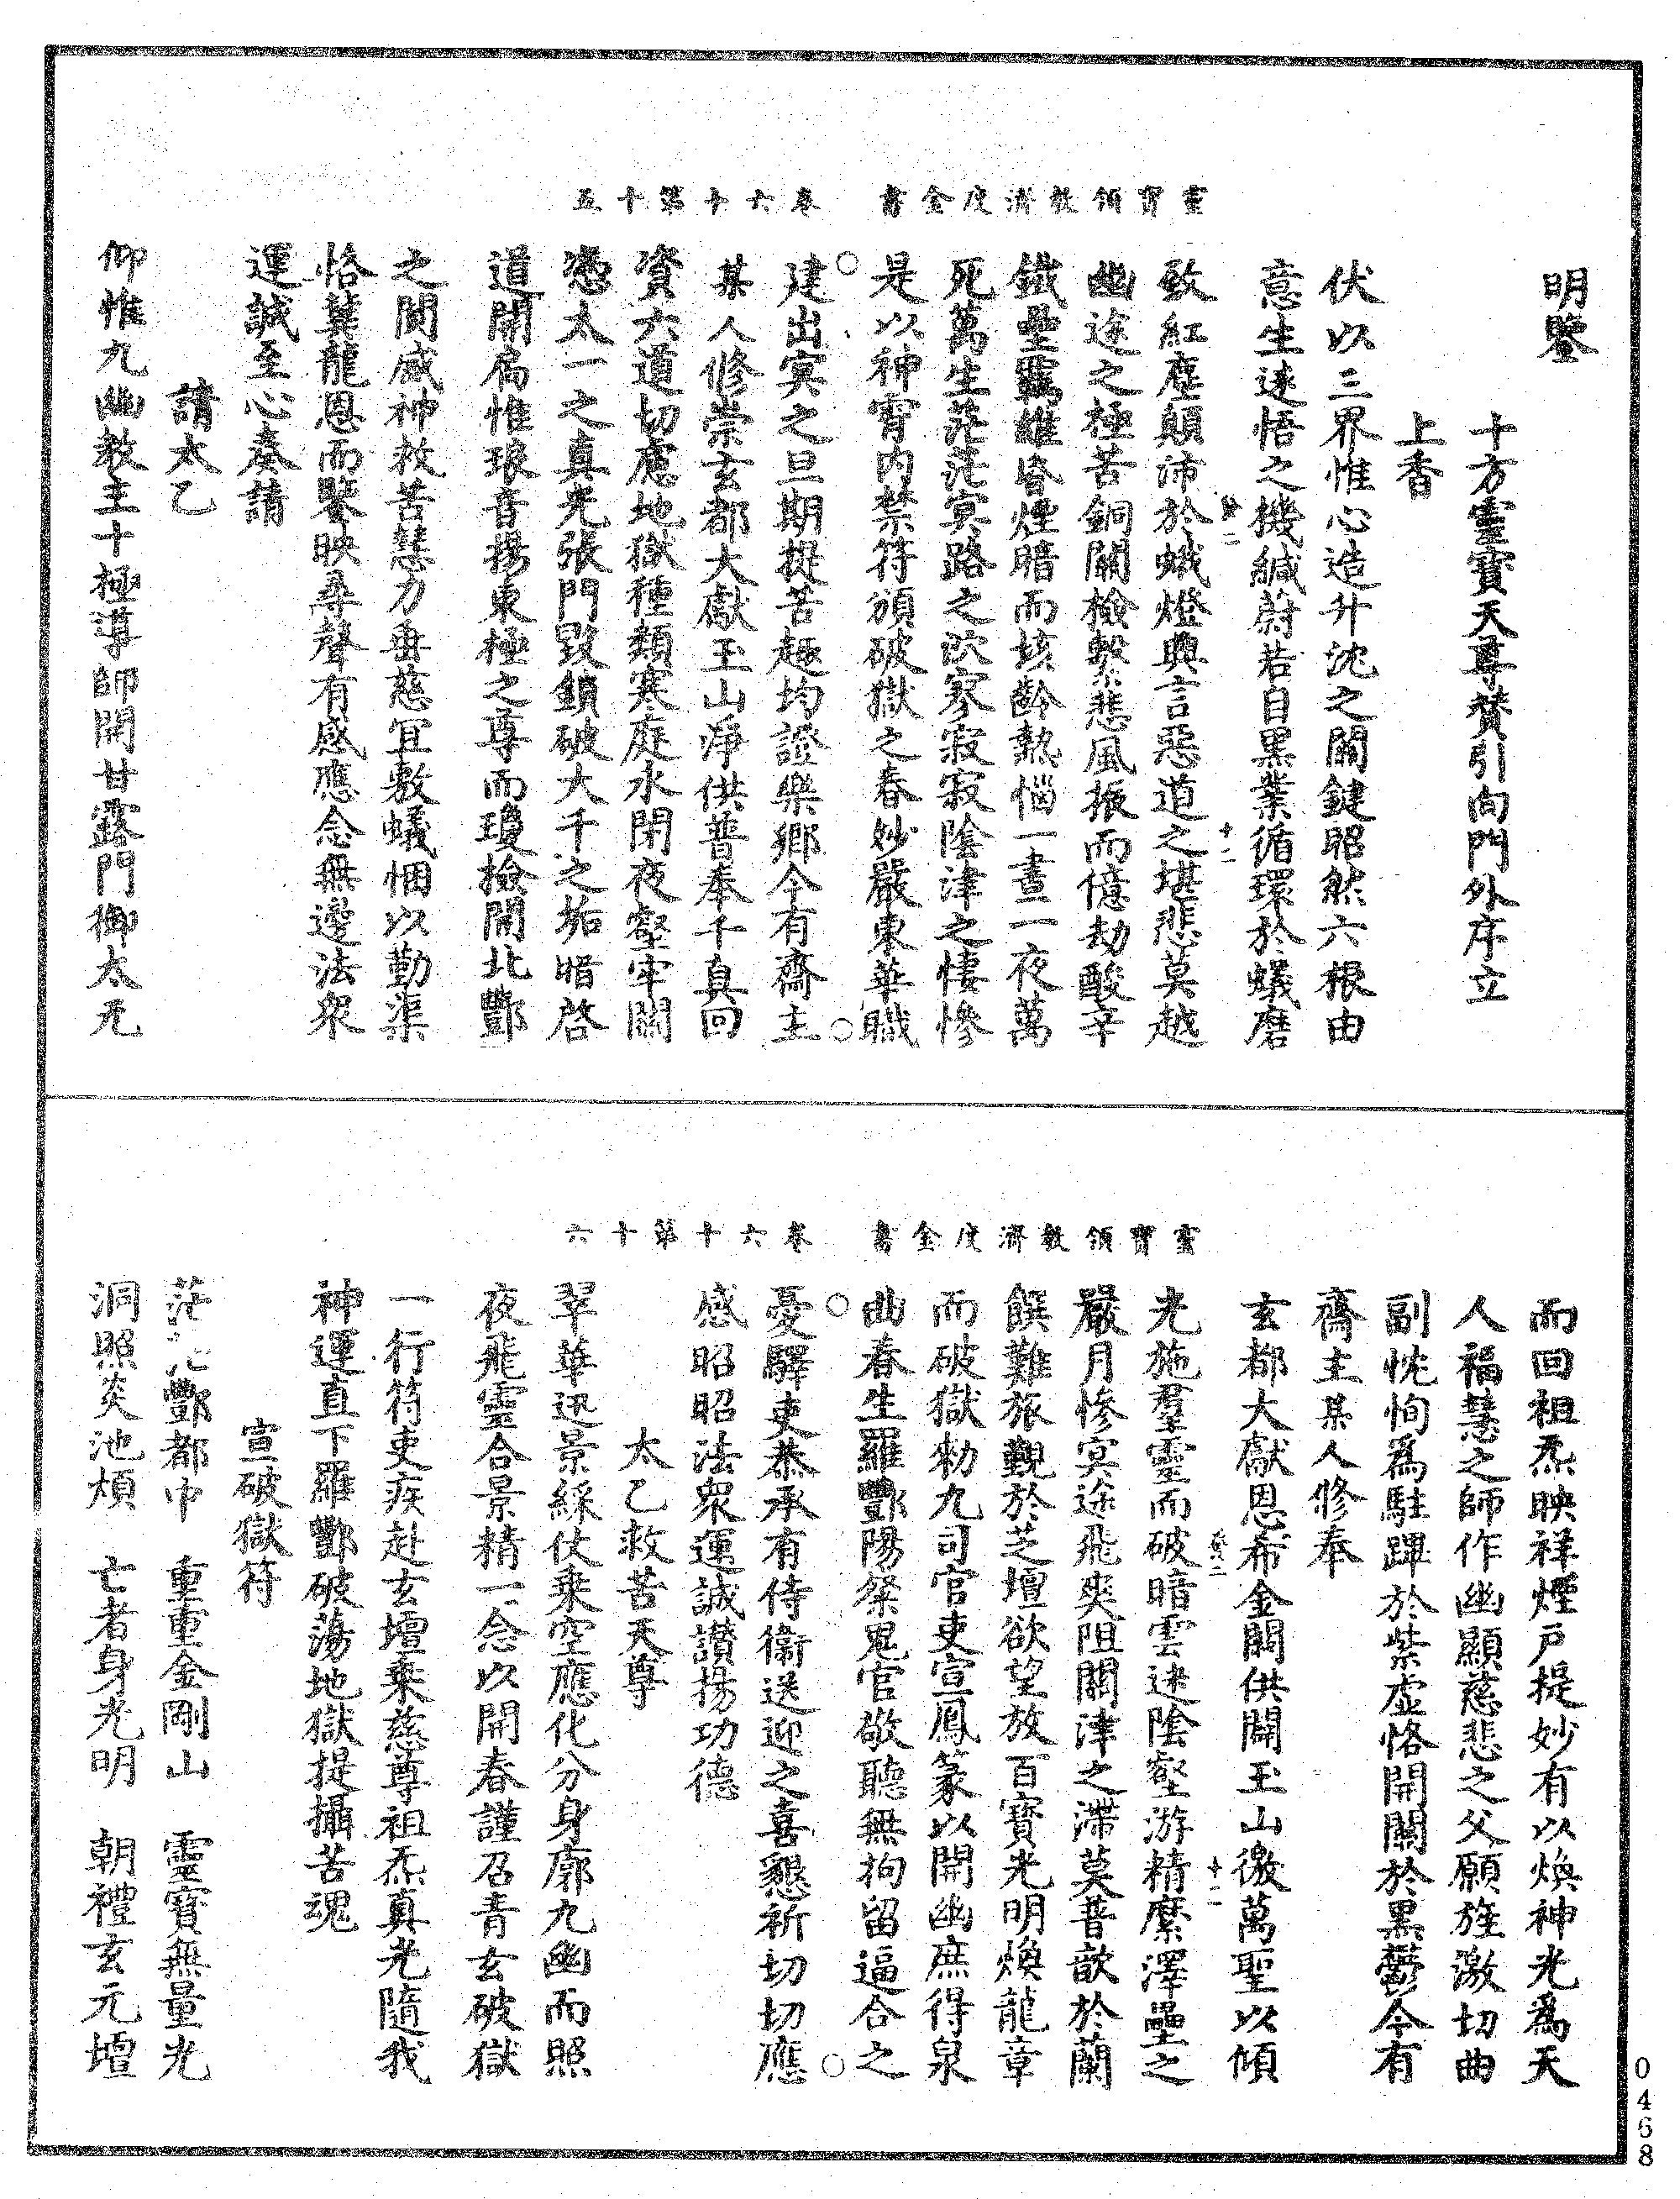 靈寶領教濟度金書　卷六十第十五
明鑒
十方靈寶天尊贊引向門外序立
上香
伏以三界惟心造升沈之關鍵昭然六根由
意生迷悟之機緘蔚若自黑業循環於蟻磨
致紅塵顛沛於蛾燈興言惡道之堪悲莫越
幽途之極苦銅關檢繫悲風振而億劫酸辛
鐵壘羈維昏煙暗而垓齡熱惱一晝一夜萬
死萬生茫茫冥路之泬寥寂寂陰津之悽慘
是以神霄内禁符頒破獄之春妙嚴東華職
建出冥之旦期提苦趣均證樂鄉今有齋主
某人修崇玄都大獻玉山淨供普奉千真回
資六道切慮地獄種類寒庭水閉夜壑牢關
憑太一之真光張門毀鎖破大千之垢暗啓
道開扃惟琅音揚東極之尊而瓊撿開北酆
之關感神救苦慧力垂慈宜敷蟻悃以勤渠
恪冀龍恩而鑒映尋聲有感應念無邊法衆
運誠至心奏請
請太乙
仰惟九幽教主十極導師開甘露門御太无
靈寶領教濟度金書　卷六十第十六
而回祖炁映祥煙戶提妙有以煥神光爲天
人福慧之師作幽顯慈悲之父願旌激切曲
副忱恂爲駐蹕於紫虛恪開關於黑鬱今有
齋主某人修奉
玄都大獻恩希金闕供闢玉山徼萬聖以傾
光施羣靈而破暗雲迷陰壑游精縻澤壘之
嚴月慘冥途飛爽阻關津之滯莫普歆於蘭
饌難旅覲於芝壇欲望放百寶光明煥龍章
而破獄勑九司官吏宣鳳篆以開幽庶得泉
曲春生羅酆陽粲鬼官敬聽無拘留逼合之
憂驛吏恭承有侍衞送迎之喜懇祈切切應
感昭昭法衆運誠讚揚功德
太乙救苦天尊
翠華迅景綵仗乘空應化分身廓九幽而照
夜飛靈合景精一念以開春謹召青玄破獄
一行符吏疾赴玄壇乘慈尊祖炁真光隨我
神運直下羅酆破蕩地獄提攝苦魂
宣破獄符
茫茫酆都中　重重金剛山　靈寶無量光
洞照炎池煩　亡者身光明　朝禮玄元壇
0468